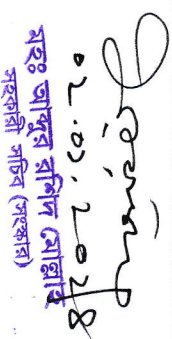 ২০.১০.২০২৪
মুহঃ আব্দুর রশিদ মোল্লাহ
সহকারী সচিব (সংস্কার)